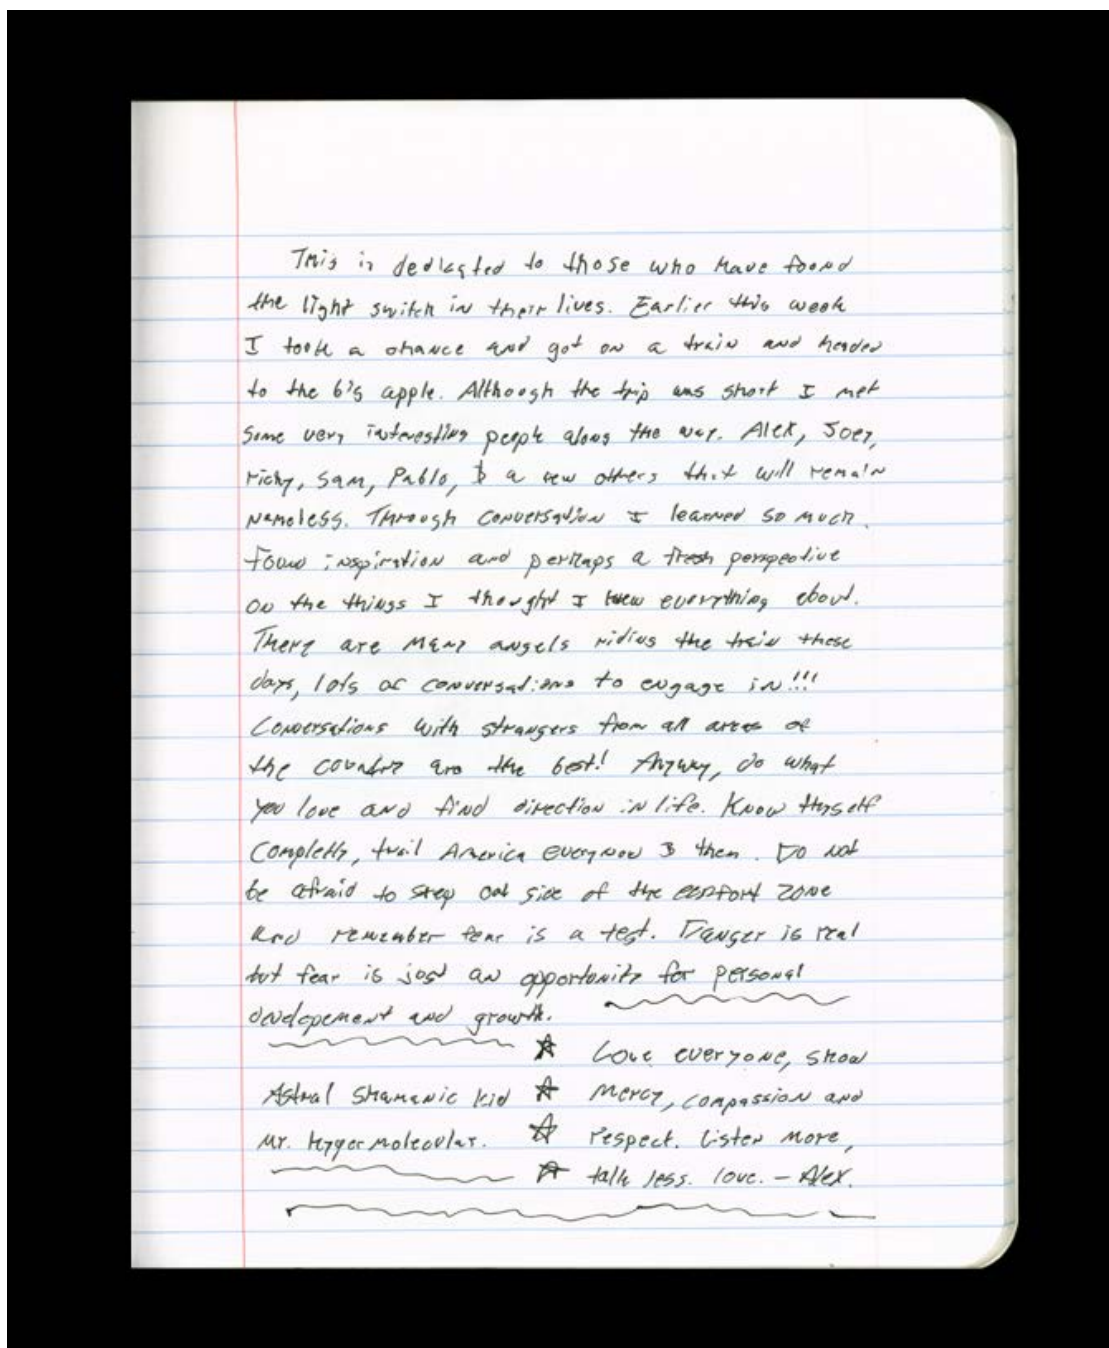 This is dedicated to those who have found
the light switch in their lives. Earlier this week
I took a chance and got on a train and headed
to the big apple. Although the trip was short I met
some very interesting people along the way. Alex, Joey,
ricky, Sam, Pablo, & a few others that will remain
nameless. Through conversation I learned so much.
Found inspiration and perhaps a fresh perspective
on the things I thought I knew everything about.
There are many angels riding the train these
days, lots of conversations to engage in!!!
Conversations with strangers from all areas of
the country are the best! Anyway, do what
you love and find direction in life. Know thyself
completly, trail America everynow & then. Do not
be afraid to step out side of the comfort zone
and remember fear is a test. Danger is real
but fear is just an opportunity for personal
developement and growth.
Love everyone, show
Astral Shamanic Kid mercy, compassion and
Mr. Hypermolecular. respect. Listen more,
talk less. love. – Alex.